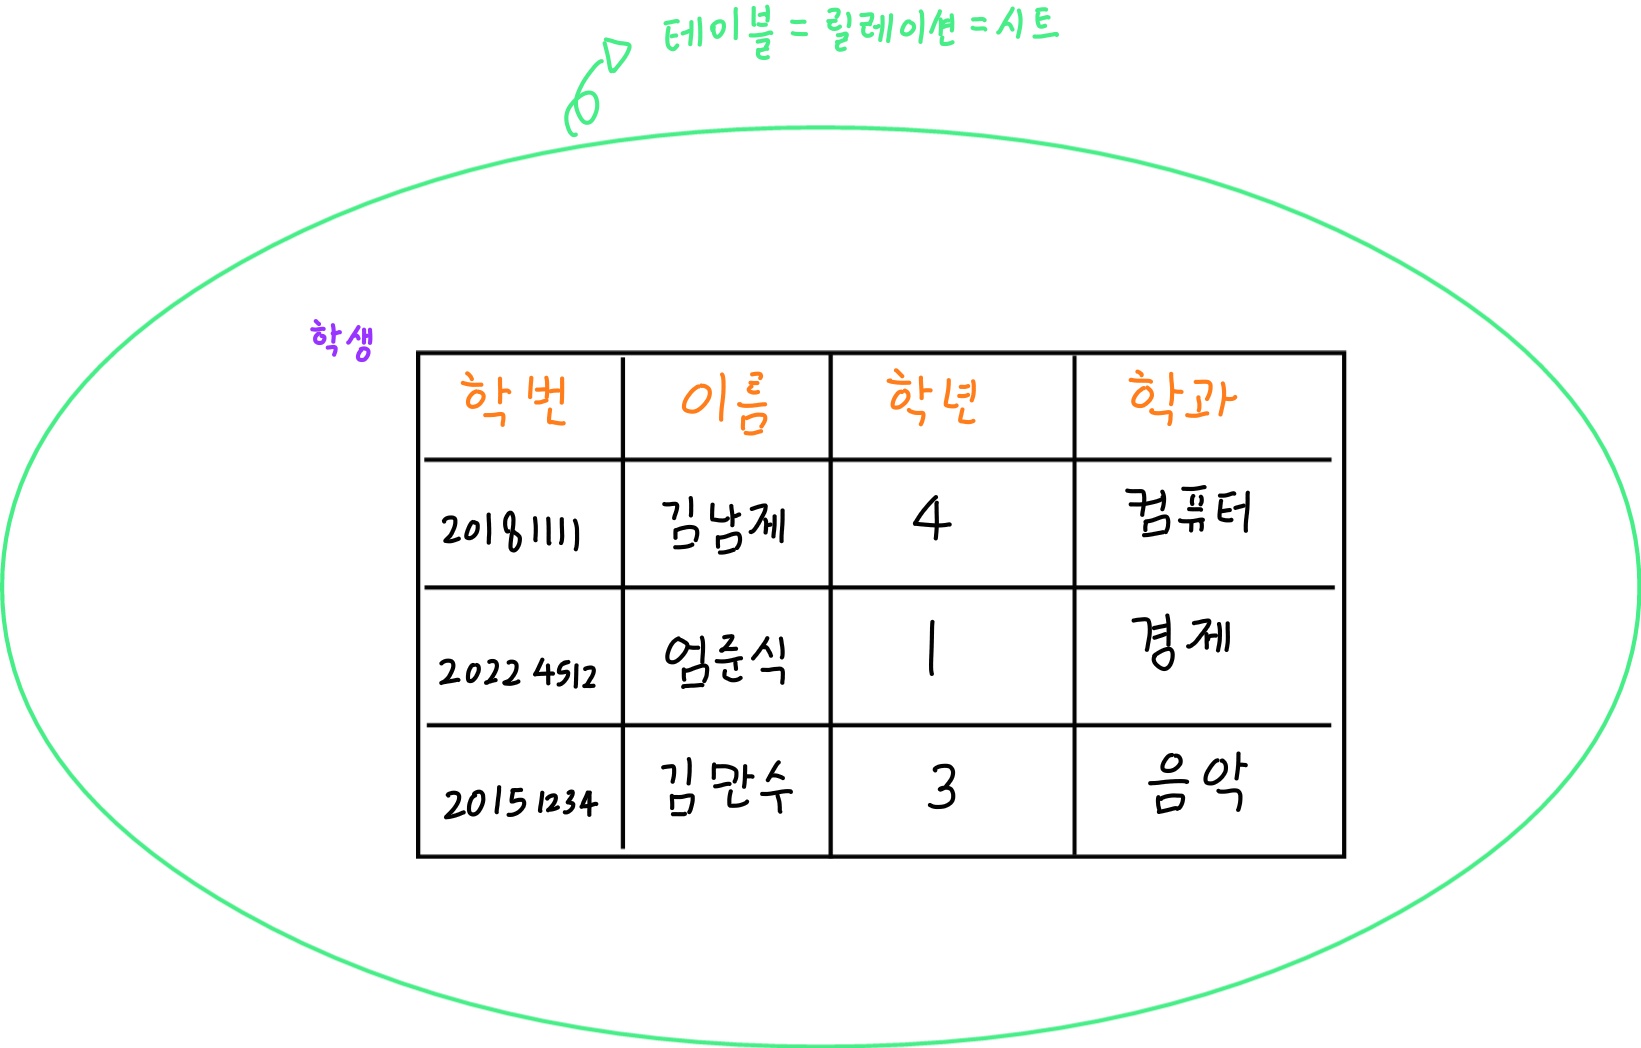 테이블 = 릴레이션 = 시트
학생
학번 이름 학년 학과
20181111 김남제 4 컴퓨터
20224512 엄준식 1 경제
20151234 김만수 3 음악